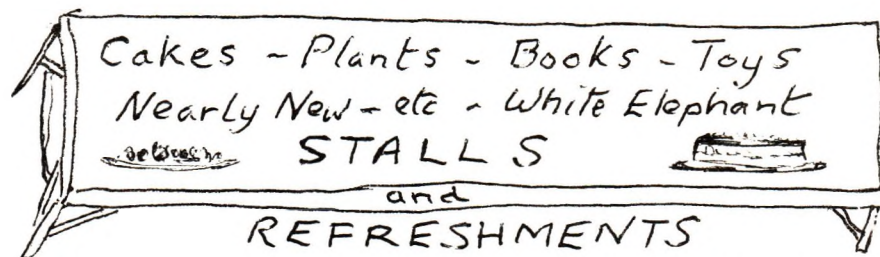 Cakes - Plants - Books - Toys
Nearly New - etc - White Elephant
STALLS
and
REFRESHMENTS